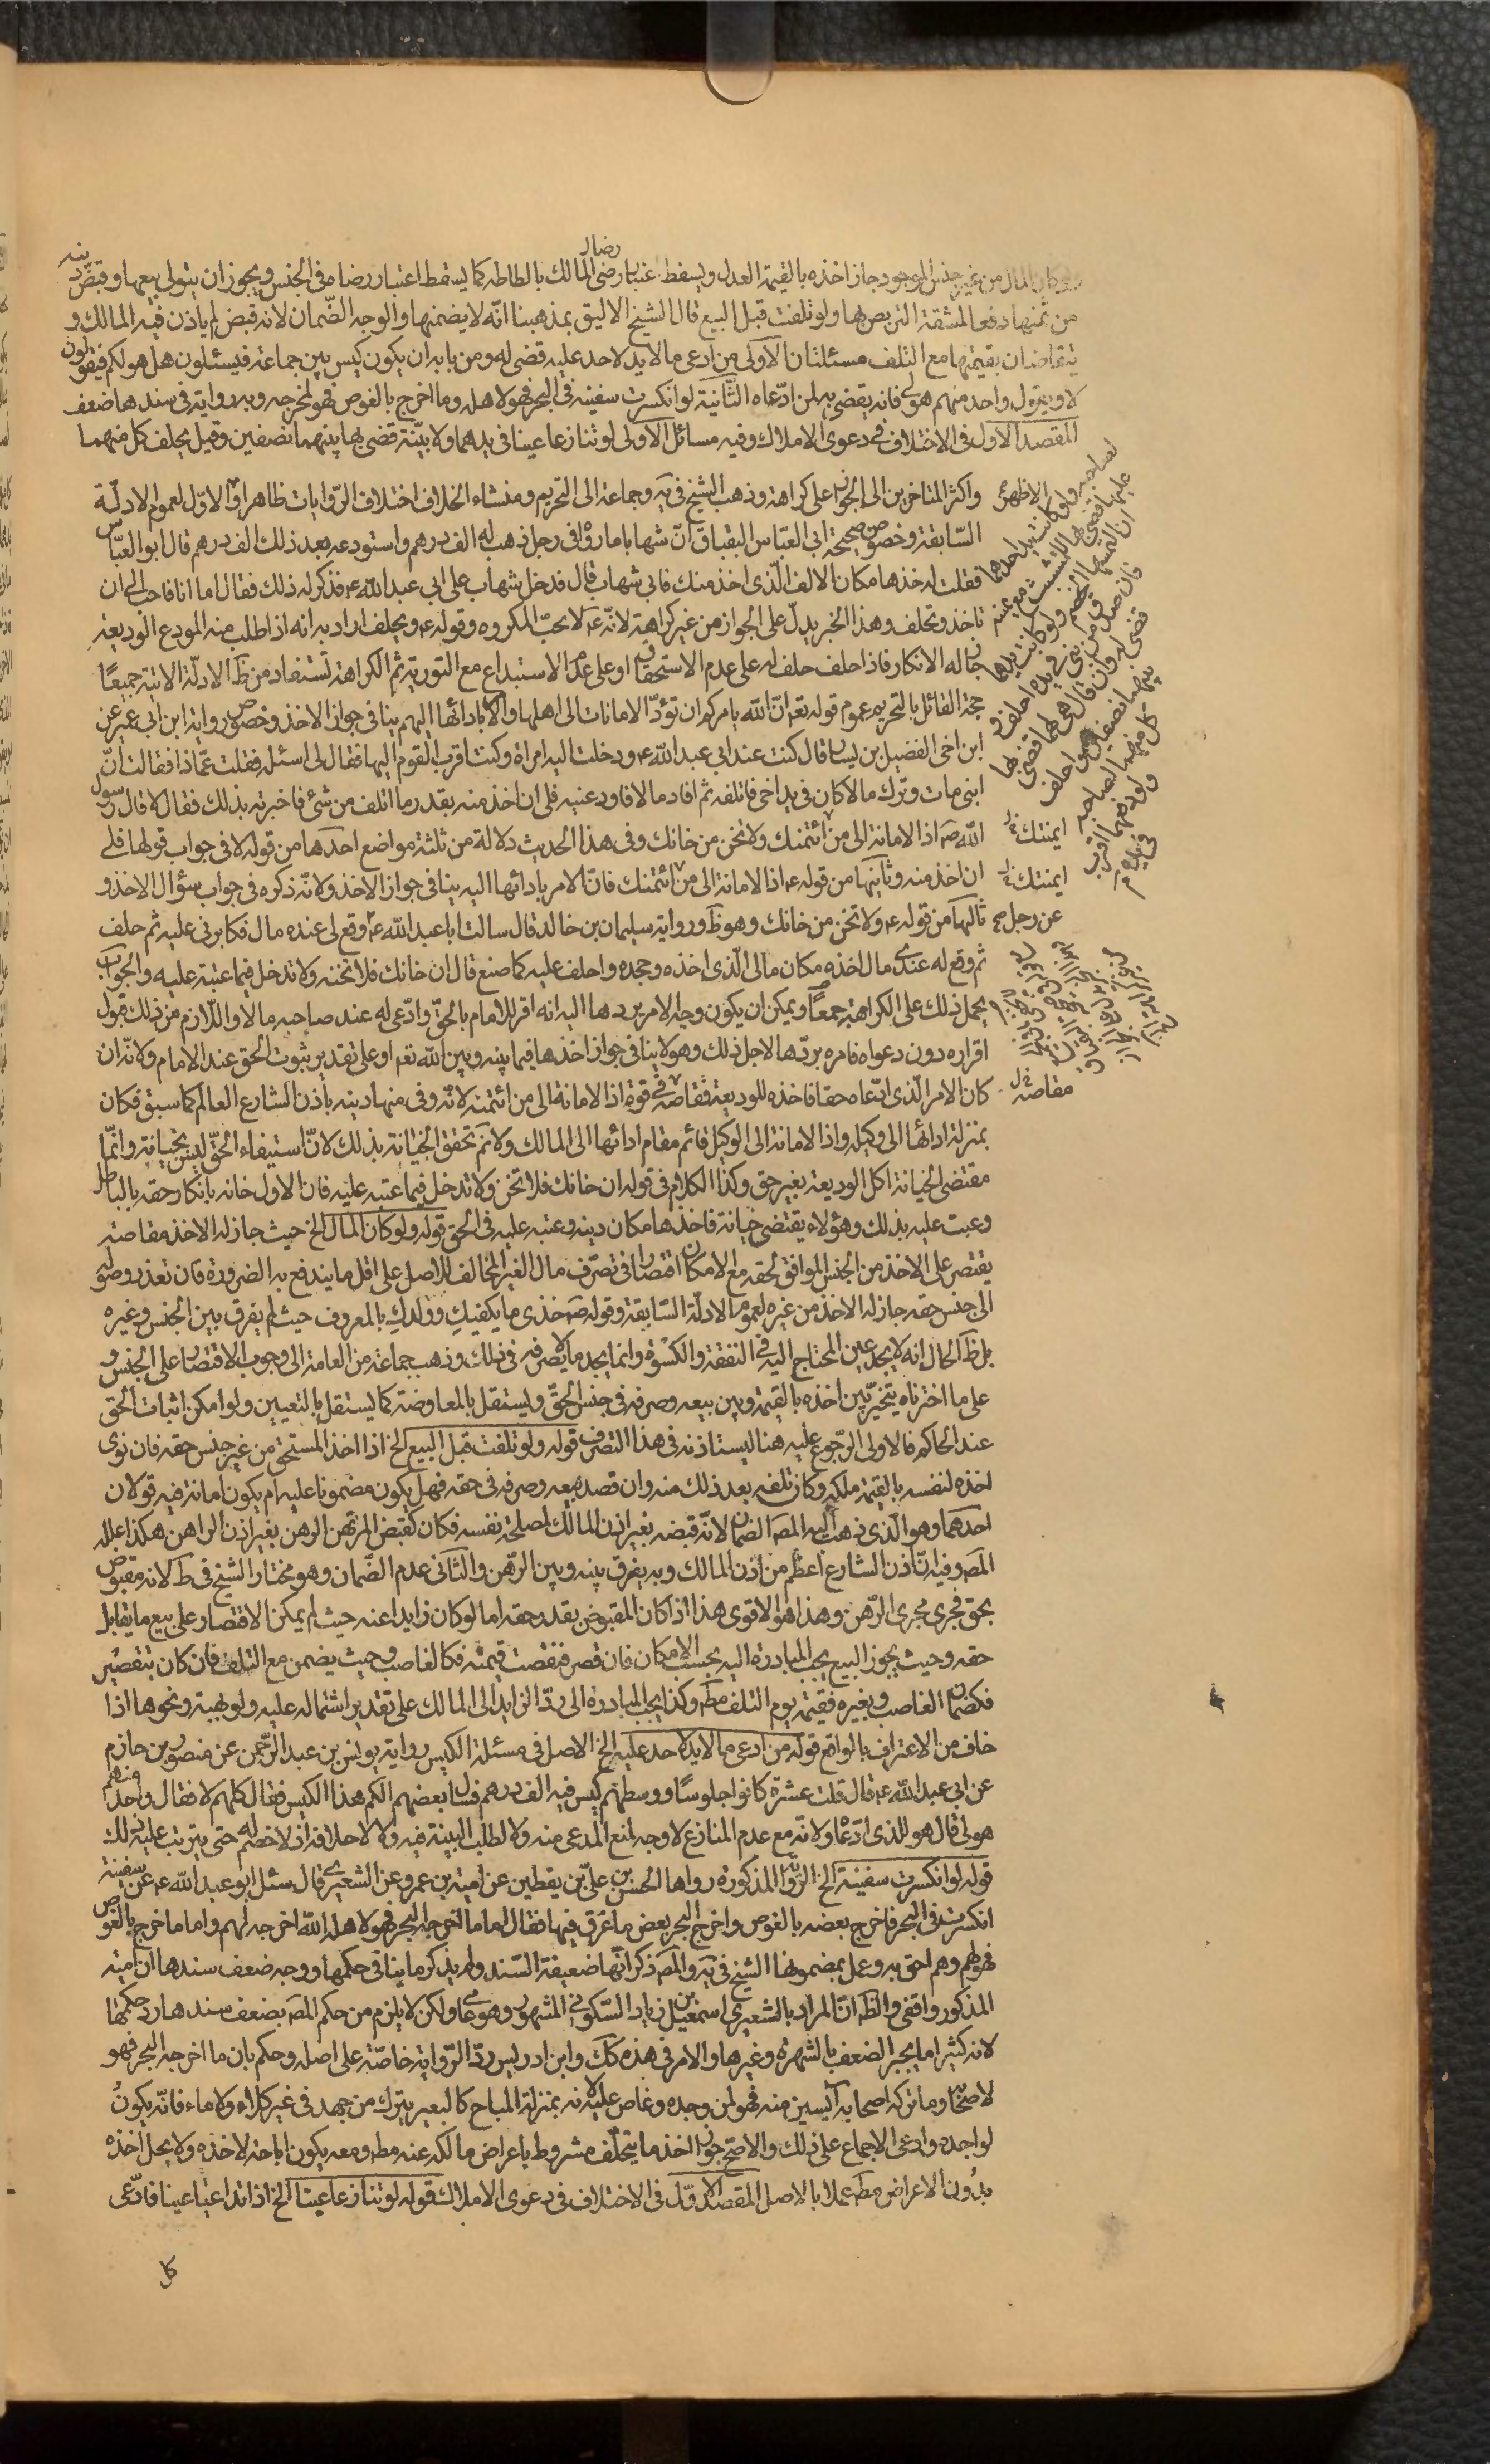 ولو كان المال من غير جنس الموجود جاز اخذه بالقيمة العدل ويسقط اعتبار رضى المالك بالطاطه كما يسقط اعتبار رضاه فى الجنس ويجوز ان يتولى بيعها وقبض دينه
من ثمنها دفعا لمشقة التربص بها ولو تلفت قبل البيع قال الشيخ الاليق بمذهبنا انّه لا يضمنها والوجه الضّمان لانه قبض لم ياذن فيه المالك و
يتقاضان بقيمتها مع التلف مسئلتان الاولى من ادعى ما لا يد لاحد عليه قضى له ومن بابه ان يكون كيس بين جماعة فيسئلون هل هو لكم فيقولون
لا ويقول واحد منهم هو لى فانه يقضى به لمن ادّعاه الثّانية لو انكسرت سفينة فى البحر فهو لاهله وما اخرج بالغوص فهو لمخرجه وبه رواية فى سندها ضعف
المقصد الاول فى الاختلاف فى دعوى الاملاك وفيه مسائل الاولى لو تنازعا عينا فى يدهما ولا بيّنة قضى بها بينهما نصفين وقيل يحلف كل منهما
واكثر المتاخرين الى الجواز على كراهة وذهب الشيخ فى يه وجماعة الى التحريم ومنشاء الخلاف اختلاف الرّوايات ظاهرا والاوّل لعموم الادلّة
السّابقة وخصوص صحيحة ابى العبّاس البقباق انّ شهابا ماراه فى رجل ذهب له الف درهم واستودعه بعد ذلك الف درهم قال ابو العبّاس
فقلت له خذها مكان الالف الّذى اخذ منك فابى شهاب قال فدخل شهاب على ابى عبد الله ع فذكر له ذلك فقال اما انا فاحب الى ان
تاخذ وتحلف وهذا الخبر يدلّ على الجواز من غير كراهة لانّه ع لا يحبّ المكروه وقوله ع ويحلف اراد به انه اذا طلب منه المودع الوديعة
جاز له الانكار فاذا حلف حلف له على عدم الاستحقاق او على عدم الاستيداع مع التورية ثم الكراهة تستفاد من ظ الادلّة الاتية جميعًا
حجة القائل بالتحريم عموم قوله تع انّ الله يامركم ان تؤدّوا الامانات الى اهلها والاباد ائها اليهم ينافى جواز الاخذ وخصوص رواية ابن ابى عمير عن
ابن اخى الفضيل بن يسار قال كنت عند ابى عبد الله ع ودخلت اليه امراة وكنت اقرب القوم اليها فقال لى اسئله فقلت عمّا ذا فقالت انّ
ابنى مات وترك مالا كان فى يد اخى فاتلفه ثم افاد مالا فاودعنيه فلى ان اخذ منه بقدر ما اتلف من شئ فاخبرته بذلك فقال لا قال رسول
الله ص اد الامانة الى من ائتمنك ولا تخن من خانك وفى هذا الحديث دلالة من ثلثة مواضع احدها من قوله لا فى جواب قولها فلى
ان اخذ منه وثانيها من قوله ع اد الامانة الى من ائتمنك فانّ الامر بادائها اليه ينافى جواز الاخذ ولانّه ذكره فى جواب سؤال الاخذ و
ثالثها من قوله ع ولا تخن من خانك وهو ظ ورواية سليمان بن خالد قال سالت ابا عبد الله ع وقع لى عنده مال فكابرنى عليه ثم حلف
ثم وقع له عندى مال اخذه مكان مالى الّذى اخذه وجحده واحلف عليه كما صنع قال ان خانك فلا تخنه ولا تدخل فيما عتبته عليه والجواب
يحمل ذلك على الكراهة جمعًا ويمكن ان يكون وجه الامر بردها اليه انه اقر للامام بالحقّ وادّعى له عند صاحبه مالا واللّازم من ذلك قبول
اقراره دون دعواه فامره بردّها لاجل ذلك وهو لا ينافى جواز اخذها فيما بينه وبين الله تع او على تقدير ثبوت الحق عند الامام ولانّه ان
كان الامر الّذى ادّعاه حقا فاخذه للوديعة مقاصّة فى قوة اد الامانة الى من ائتمنه لانّه وفى منها دينه باذن الشارع العالم كما سبق فكان
بمنزلة ادائها الى وكيله واد الامانة الى الوكيل قائم مقام ادائها الى المالك ولا ثم تحقق الخيانة بذلك لانّ استيفاء الحقّ ليس بخيانة وانّما
مقتضى الخيانة اكل الوديعة بغير حق وكذا الكلام فى قوله ان خانك فلا تخن ولا تدخل فيما عتبه عليه فان الاول خانه بانكار حقه بالباطل
وعبت عليه بذلك وهؤلاء يقتضى خيانة فاخذها مكان دينه وعتبه عليه فى الحق قوله ولو كان المال الخ حيث جاز له الاخذ مقاصة
يقتصر على الاخذ من الجنس الموافق لحقه مع الامكان اقتصارا فى تصرّف مال الغير المخالف للاصل على اقل ما يندفع به الضرورة فان تعذر وصوله
الى جنس حقه جاز له الاخذ من غيره لعموم الادلّة السّابقة وقوله ص خذى ما يكفيكِ وولدكِ بالمعروف حيث لم يفرق بين الجنس وغيره
بل ظ الحال انه لا يجد عين المحتاج اليه فى النفقة والكسوة وانما يجد ما يصرفه فى ذلك وذهب جماعة من العامة الى وجوب الاقتصار على الجنس و
على ما اخترناه يتخيّر بين اخذه بالقيمة وبين بيعه وصرفه فى جنس الحقّ ويستقل بالمعاوضة كما يستقل بالتعيين ولو امكن اثبات الحق
عند الحاكم فالاولى الرّجوع عليه هنا ليستاذنه فى هذا التصرف قوله ولو تلفت قبل البيع الخ اذا اخذ المستحق من غير جنس حقه فان نوى
اخذه لنفسه بالقيمة ملكه وكان تلفه بعد ذلك منه وان قصد بيعه وصرفه فى حقه فهل يكون مضمونا عليه ام يكون امانة فيه قولان
احدهما وهو الّذى ذهب اليه المص الضمان لانّه قبضه بغير اذن المالك لمصلحة نفسه فكان كقبض المرتهن الرهن بغير اذن الراهن هكذا علله
المص وفيه انّ اذن الشارع اعظم من اذن المالك وبه يفرق بينه وبين الرّهن والثانى عدم الضّمان وهو مختار الشيخ فى ط لانه مقبوض
بحق فجرى مجرى الرّهن وهذا هو الاقوى هذا اذا كان المقبوض بقدر حقه اما لو كان زايدا عنه حيث لم يمكن الاقتصار على بيع ما يقابل
حقه وحيث يجوز البيع يجب المبادرة اليه بحسب الامكان فان قصر فنقصت قيمته فكالغاصب وحيث يضمن مع التلف فان كان بتقصير
فكضمان الغاصب وبغيره فقيمته يوم التلف مط وكذا يجب المبادرة الى ردّ الزايد الى المالك على تقدير اشتماله عليه ولو بهبة ونحوها اذا
خاف من الاعتراف بالواقع قوله من ادعى ما لا يد لاحد عليه الخ الاصل فى مسئلة الكيس رواية يونس بن عبد الرّحمن عن منصور بن حازم
عن ابى عبد الله ع قال قلت عشرة كانوا جلوسًا ووسطهم كيس فيه الف درهم فسال بعضهم الكم هذا الكيس فقال كلهم لا فقال واحد منهم
هو لى قال هو للذى ادّعاه ولانّه مع عدم المنازع لا وجه لمنع المدعى منه ولا لطلب البينة فيه ولا لاحلافه اذ لا خصم له حتى يترتب عليه ذلك
قوله لو انكسرت سفينة الخ الرّواية المذكورة رواها الحسن بن علىّ بن يقطين عن امية بن عمرو عن الشعيرى قال سئل ابو عبد الله ع عن سفينة
انكسرت فى البحر فاخرج بعضه بالغوص واخرج البحر بعض ما غرق فيها فقال اما ما اخرجه البحر فهو لاهله الله اخرجه لهم واما ما اخرج بالغوص
فهو لهم وهم احق به وعمل بمضمونها الشيخ فى يه والمص ذكر انّها ضعيفة السّند ولم يذكر ما ينافى حكمها ووجه ضعف سندها ان امية
المذكور واقفى والظ انّ المراد بالشعيرى اسمعيل بن زياد السّكونى المشهور وهو عامى ولكن لا يلزم من حكم المص بضعف سندها رد حكمها
لانه كثيرا ما يجبر الضعف بالشهرة وغيرها والامر فى هذه كك وابن ادريس ردّ الرّواية خاصّة على اصله وحكم بان ما اخرجه البحر فهو
لاصحابه وما تركه اصحابه آيسين منه فهو لمن وجده وغاص عليه لانه بمنزلة المباح كالبعير يترك من جهد فى غير كلاء ولا ماء فانّه يكونُ
لواجده وادعى الاجماع على ذلك والاصح جواز اخذ ما يتخلّف مشروط باعراض مالكه عنه مط ومعه يكون اباحة لاخذه ولا يحل اخذه
بدُون الاعراض مط عملا بالاصل المقصد الاوّل فى الاختلاف فى دعوى الاملاك قوله لو تنازعا عينًا الخ اذا تداعيا عينا فادّعى
كل
رضا ل
الاظهر
لصاحبه ولو كانت يد احدهما
عليها قضى بها للمتشبث مع يمينه
ان التمسها الخصم ولو كانت يدهما
قضى له وان قال هى لهما قضى بها
بينهما نصفين واحلف
كل منهما لصاحبه
ولو دفعهما اقرت
فى يده
ايمنتك خ ل
ايمنتك خ ل
عن رجل صح
مقاصة خ ل